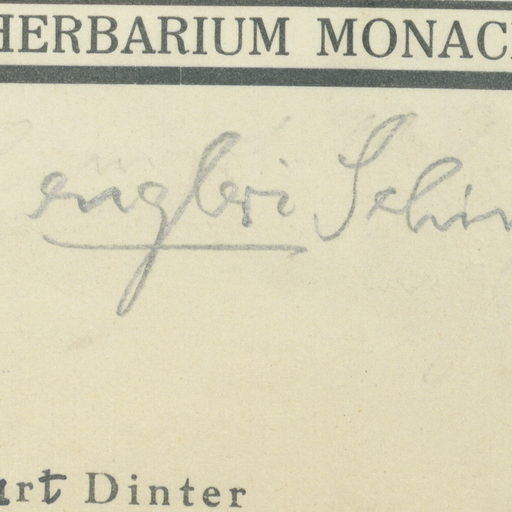 HERBARIUM MONAC
engleri Schin
urt Dinter